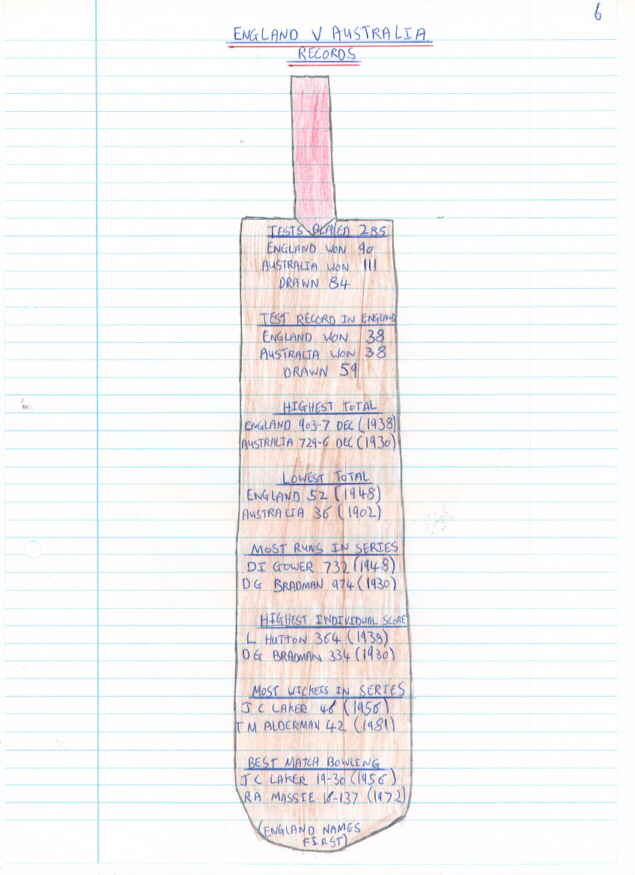 6
ENGLAND V AUSTRALIA
RECORDS
TESTS PLAYED 285
ENGLAND WON 90
AUSTRALIA WON 111
DRAWN 84
TEST RECORD IN ENGLAND
ENGLAND WON 38
AUSTRALIA WON 38
DRAWN 59
HIGHEST TOTAL
ENGLAND 903-7 DEC (1938)
AUSTRALIA 729-6 DEC (1930)
LOWEST TOTAL
ENGLAND 52 (1948)
AUSTRALIA 36 (1902)
MOST RUNS IN SERIES
DI GOWER 732 (1948)
DG BRADMAN 974 (1930)
HIGHEST INDIVIDUAL SCORE
L HUTTON 364 (1938)
DG BRADMAN 334 (1930)
MOST WICKETS IN SERIES
J C LAKER 46 (1956)
T M ALDERMAN 42 (1981)
BEST MATCH BOWLING
J C LAKER 19-90 (1956)
RA MASSIE 16-137 (1972)
(ENGLAND NAMES
FIRST)